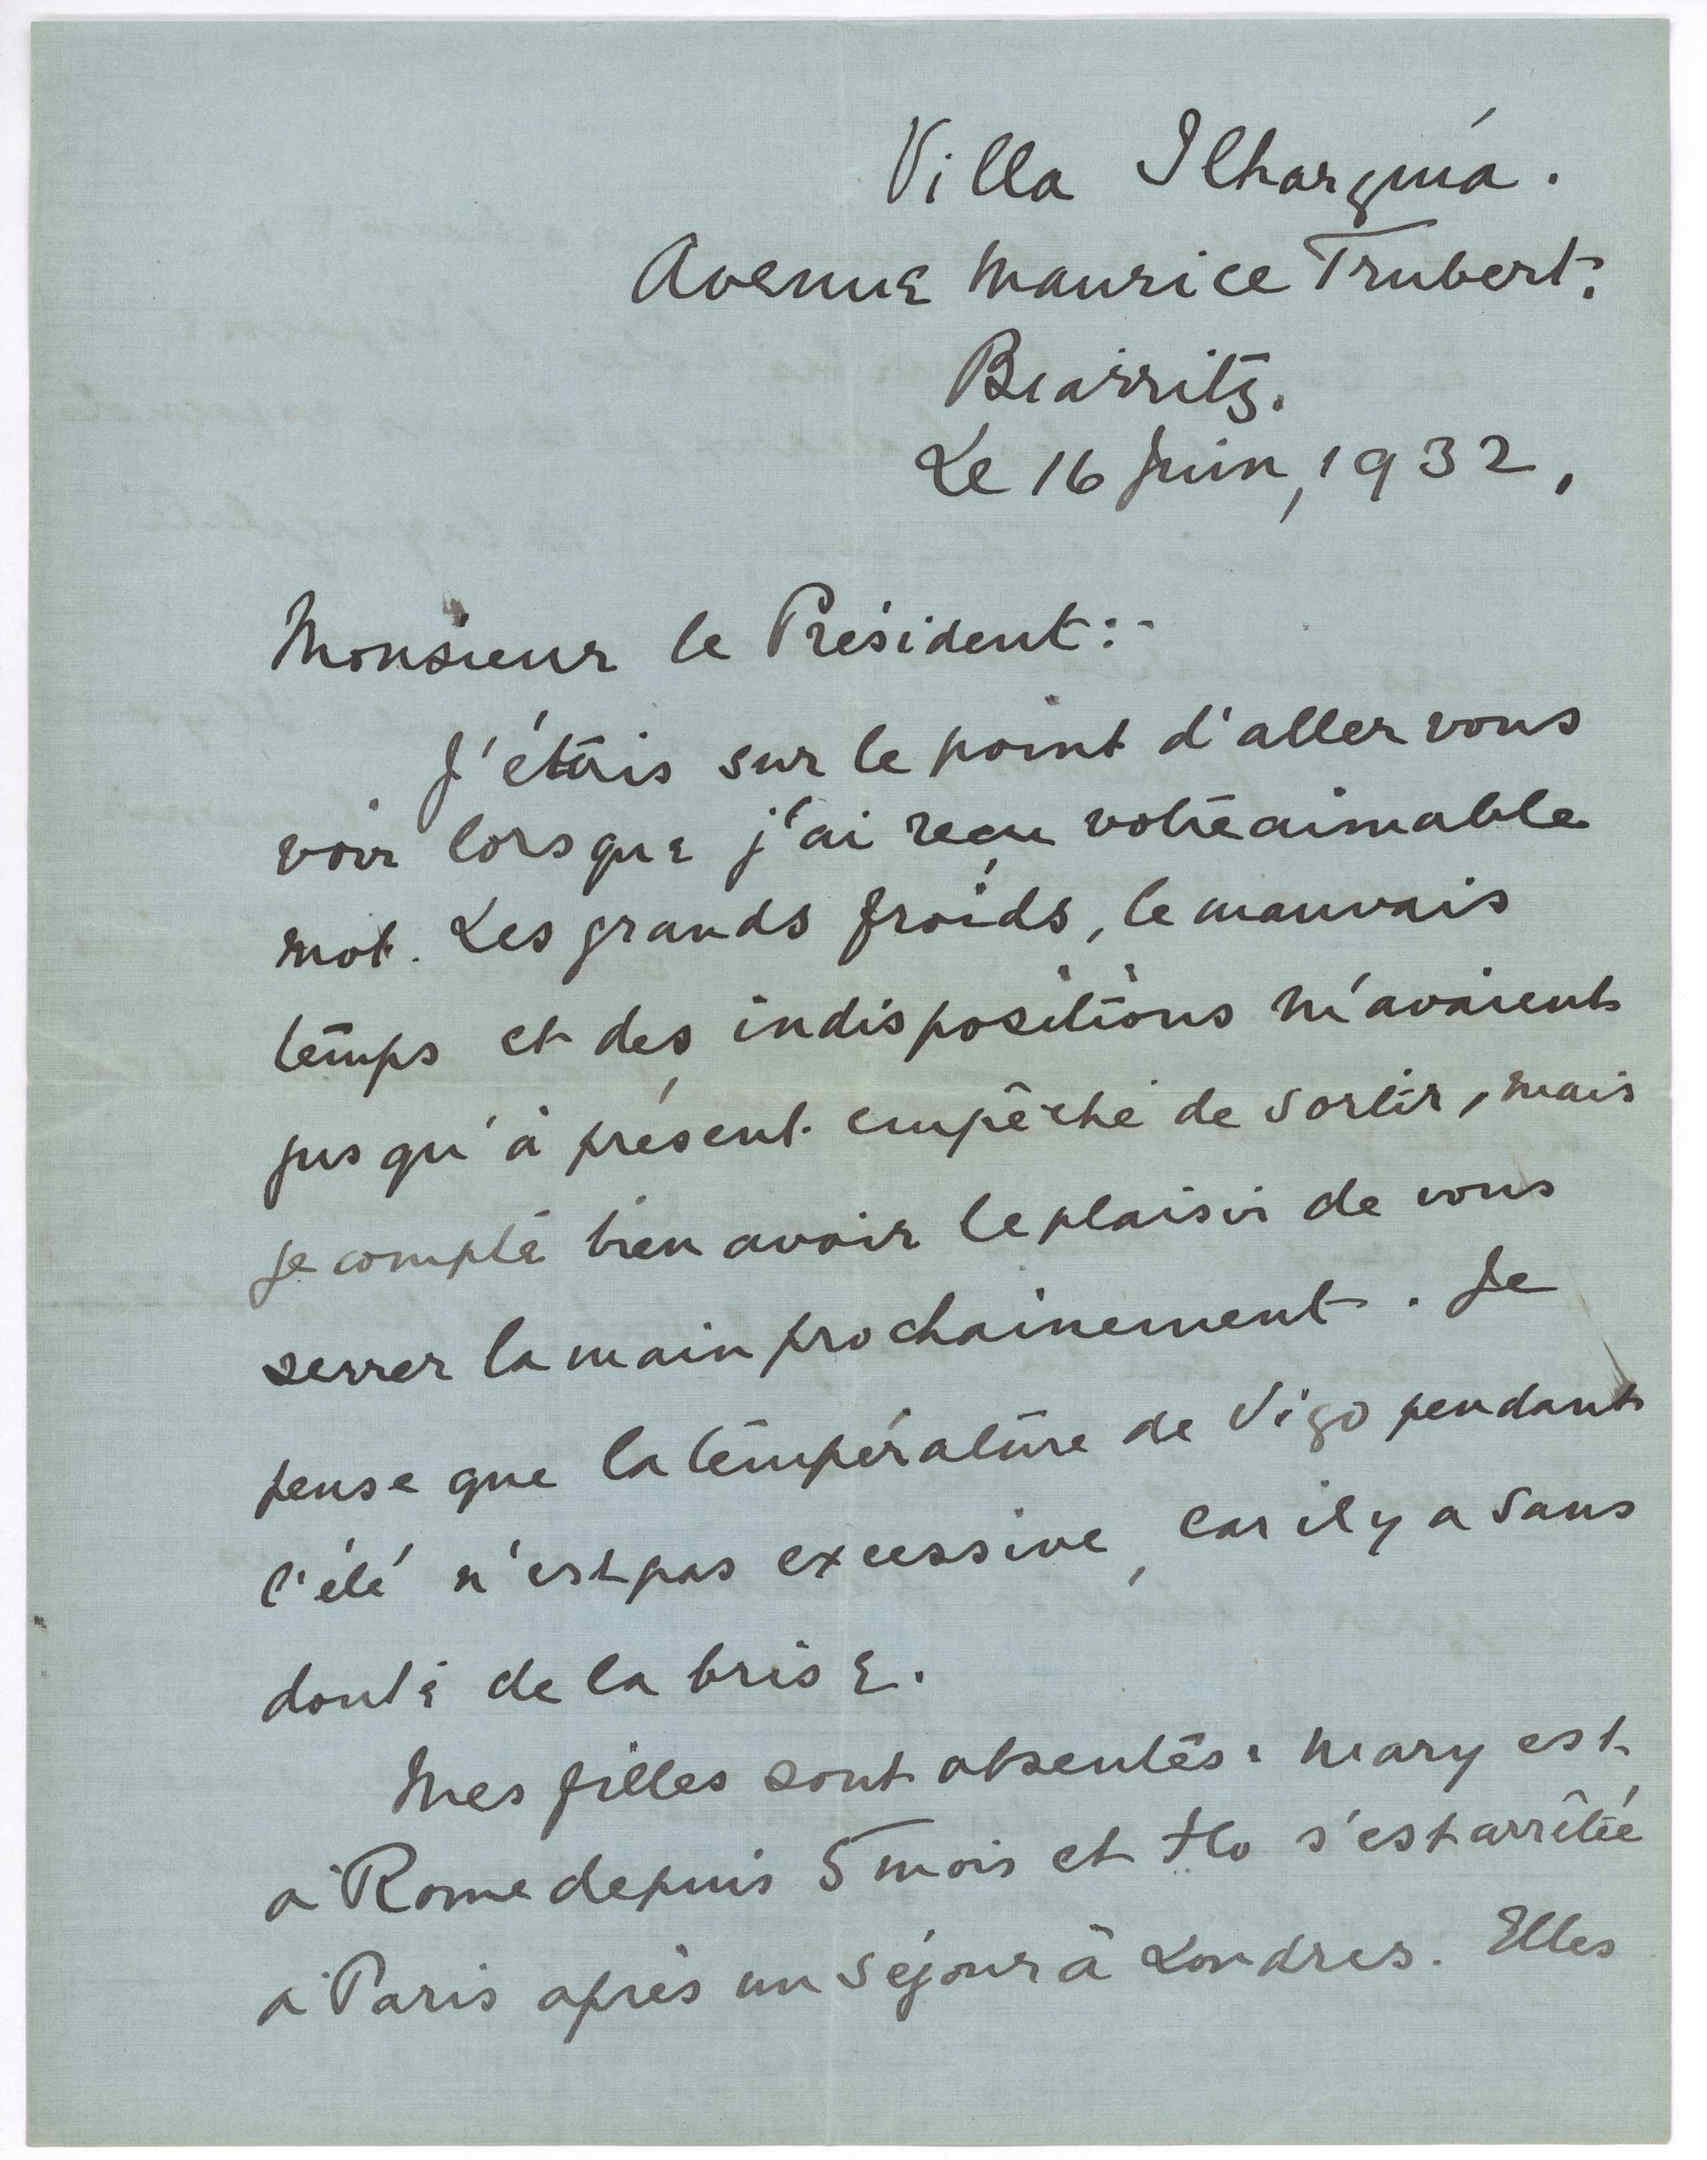 Villa Ilharguia.
Avenue Maurice Trubert.
Biarritz.
Le 16 Juin, 1932,
Monsieur le Président:-
J'étais sur le point d'aller vous
voir lorsque j'ai reçu votre aimable
mot. Les grands froids, le mauvais
temps et des indispositions m'avaient
jusqu'à présent empêché de sortir, mais
je compte bien avoir le plaisir de vous
serrer la main prochainement. Je
pense que la température de Vigo pendant
l'été n'est pas excessive, car il y a sans
doute de la brise.
Mes filles sont absentes: Mary est
à Rome depuis 5 mois et Flo s'est arrêtée
à Paris après un séjour à Londres. Elles